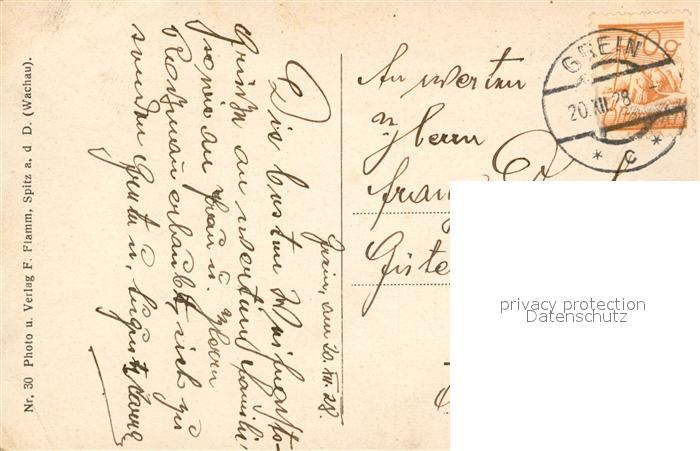 Nr. 30 Photo u. Verlag F. Flamm, Spitz a. d D. (Wachau).
Grein, am 20. XII. 28.
Die besten Weihnachts-
grüße an werten Famili
sowie an Frau u. Herrn
erlaubt sich zu
senden u.
An werten
Herrn
Güte
GREIN
20.XII.28
* c *
privacy protection
Datenschutz